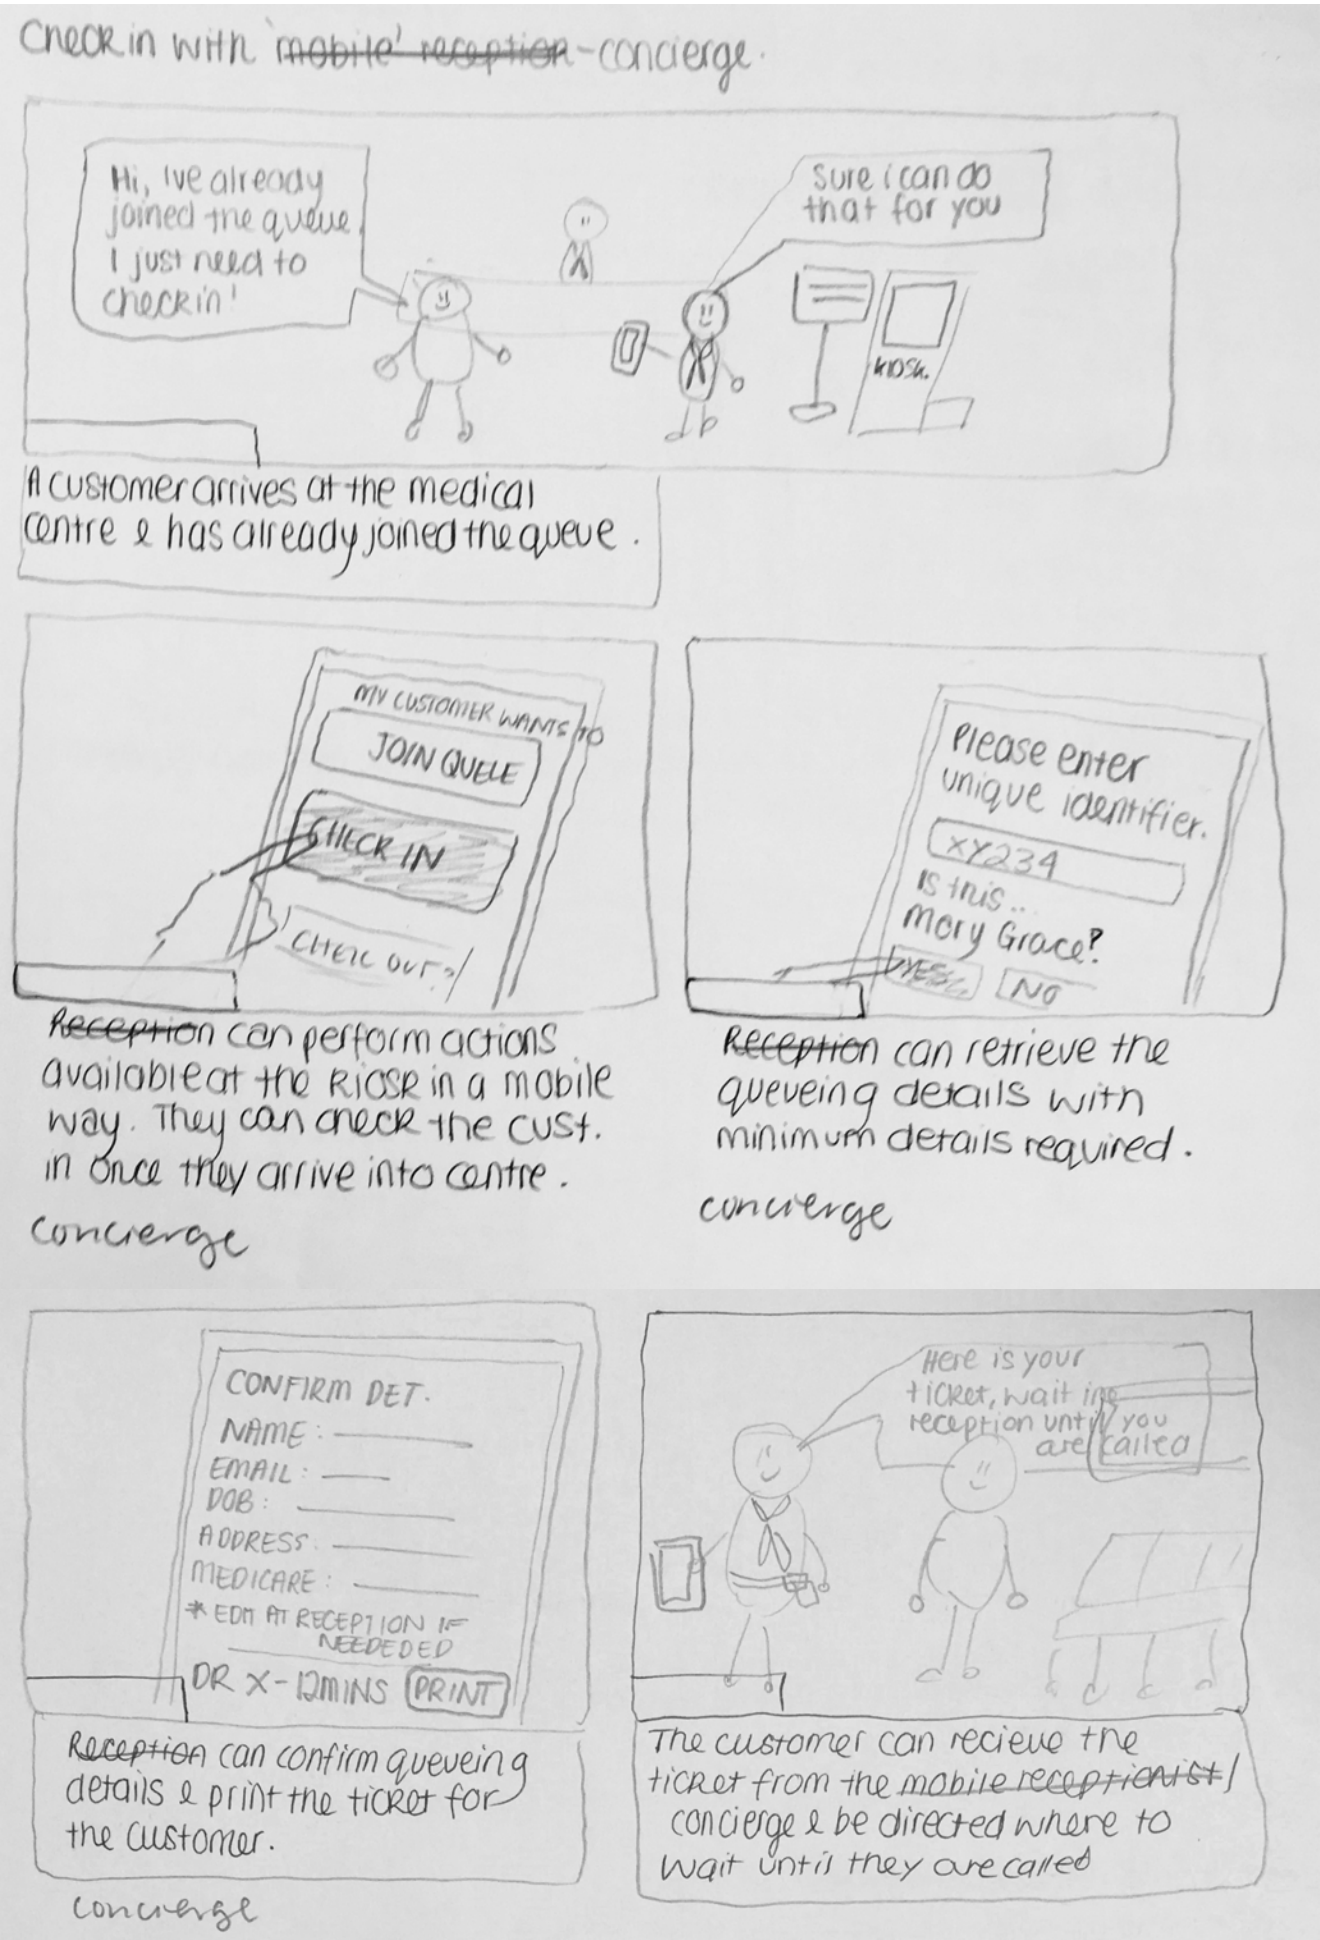 Check in with 'mobile' reception - concierge.
Hi, Ive already
joined the queue
I just need to
checkin!
Sure i can do
that for you
KIOSK.
A customer arrives at the medical
centre & has already joined the queue.
MY CUSTOMER WANTS TO
JOIN QUEUE
CHECK IN
CHECK OUT
Reception can perform actions
available at the kiosk in a mobile
way. They can check the cust.
in once they arrive into centre.
concierge
Please enter
unique identifier.
XY234
Is this..
Mary Grace?
YES NO
Reception can retrieve the
queueing details with
minimum details required.
concierge
CONFIRM DET.
NAME:
EMAIL:
DOB:
ADDRESS:
MEDICARE:
* EDIT AT RECEPTION IF
NEEDEDED
DR X - 12MINS PRINT
Reception can confirm queueing
details & print the ticket for
the customer.
concierge
Here is your
ticket, wait in
reception until you
are called
The customer can recieve the
ticket from the mobile receptionist/
concierge & be directed where to
wait until they are called